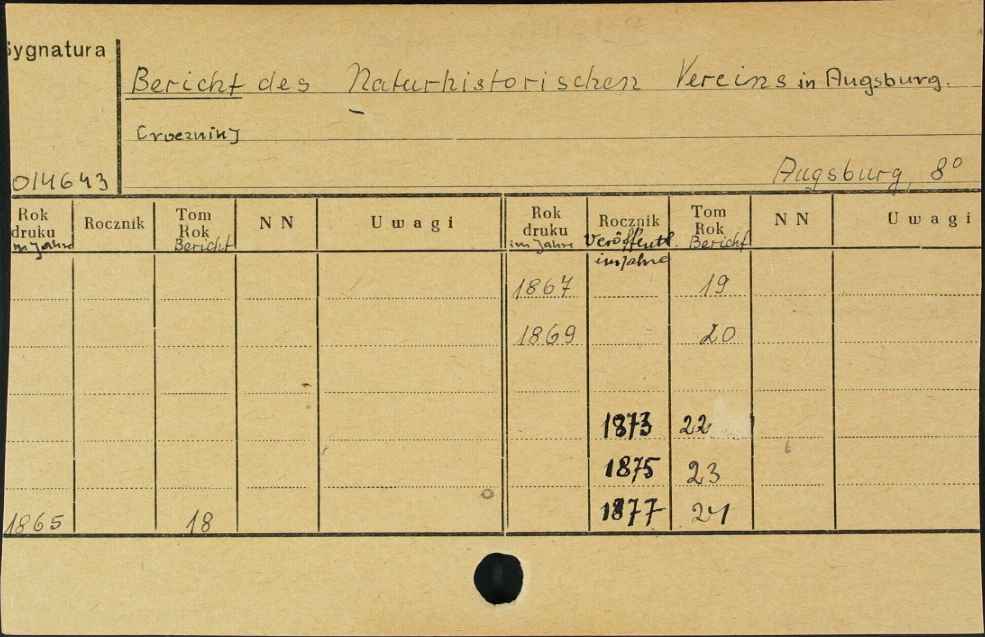 Sygnatura
Bericht des Naturhistorischen Vereins in Augsburg.
014643
Augsburg, 8°
Rok druku im Jahre Rocznik Tom Rok Bericht NN Uwagi Rok druku im Jahre Rocznik Veröffentl. im Jahre Tom Rok Bericht NN Uwagi
1867 19
1869 20
1873 22
1875 23
1865 18 1877 24